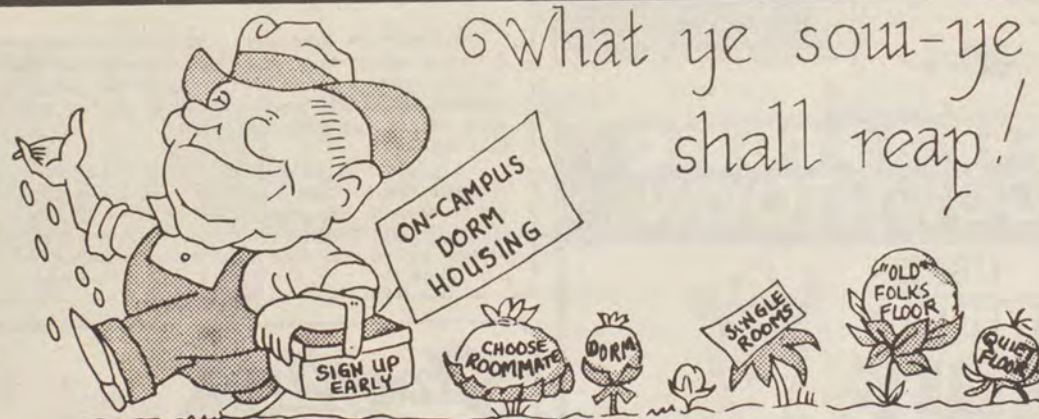 What ye sow-ye
shall reap!
ON-CAMPUS
DORM
HOUSING
SIGN UP
EARLY
CHOOSE
ROOMMATE
DORM
SINGLE
ROOMS
"OLD"
FOLKS
FLOOR
QUIET
FLOOR